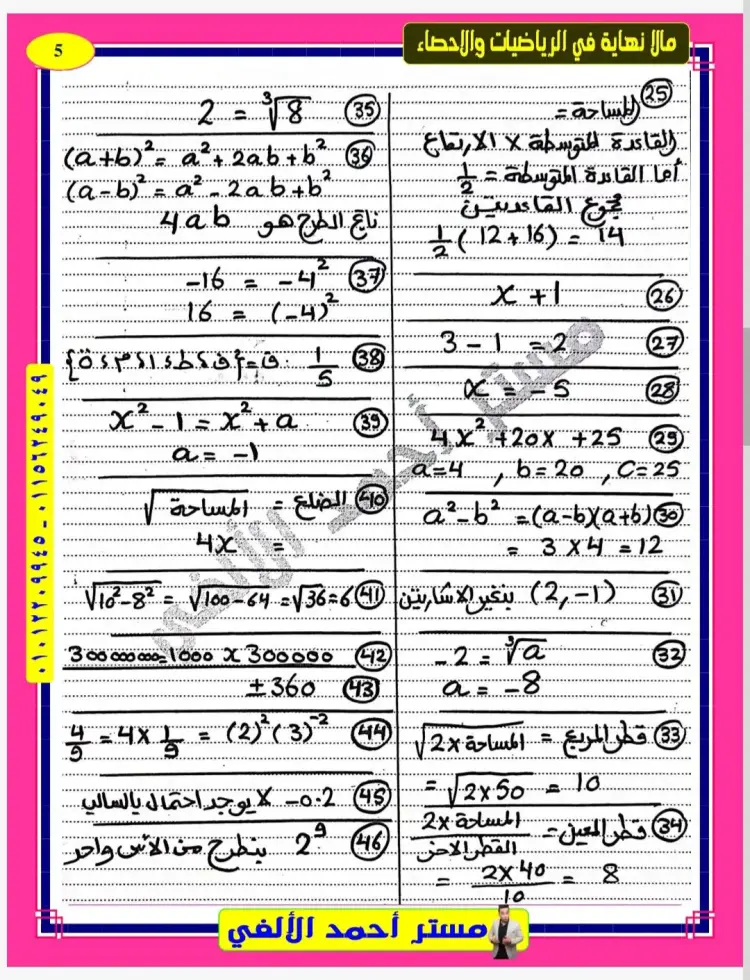 مالا نهاية في الرياضيات والاحصاء
5
25 المساحة =
القاعدة المتوسطة X الارتفاع
أما القاعدة المتوسطة = 1/2
مجموع القاعدتين
1/2 (12 + 16) = 14
26 x + 1
27 3 - 1 = 2
28 x = -5
29 4x² + 20x + 25
a=4 , b=20 , C=25
30 a² - b² = (a-b)(a+b)
= 3 X 4 = 12
31 (2, -1) بنغير الاشارتين
32 -2 = ∛a
a = -8
33 قطر المربع = √2x المساحة
= √2x50 = 10
34 قطر المعين = 2x المساحة / القطر الاخر
= 2x40 / 10 = 8
35 2 = ∛8
36 (a+b)² = a² + 2ab + b²
(a-b)² = a² - 2ab + b²
ناتج الطرح هو 4ab
37 -16 = -4²
16 = (-4)²
38 1/5 . ق = {ف، ط، ا، م، ة}
39 x² - 1 = x² + a
a = -1
40 الضلع = √المساحة
= 4x
41 √10²-8² = √100-64 = √36 = 6
42 300000000=1000 X 300000
43 ±360
44 4/9 = 4X 1/9 = (2)² (3)⁻²
45 -0.2 لا يوجد احتمال بالسالب
46 2⁹ بنطرح من الأس واحد
مستر أحمد الألفي
٠١٠١٢٢٠٩٩٤٥ - ٠١١٥٦٢٤٩٠٤٩
مستر أحمد الألفي